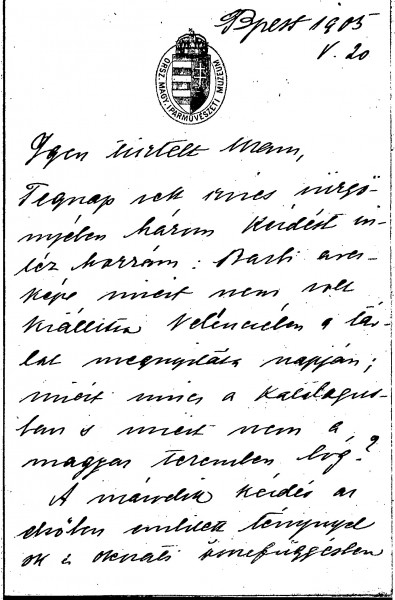 Bpest 1905
V. 20
ORSZ. MAGY. IPARMŰVÉSZETI MÚZEUM
Igen tisztelt Uram,
Tegnap vett szives sürgö-
nyében három kérdést in-
téz hozzám: Barbi arcz-
képe miért nem volt
kiállitva Velenczében a tár-
lat megnyitása napján;
miért nincs a katalógus-
ban s miért nem a
magyar teremben lóg?
A második kérdés az
elsőben emlitett ténynyel
ok s okozati összefüggésben